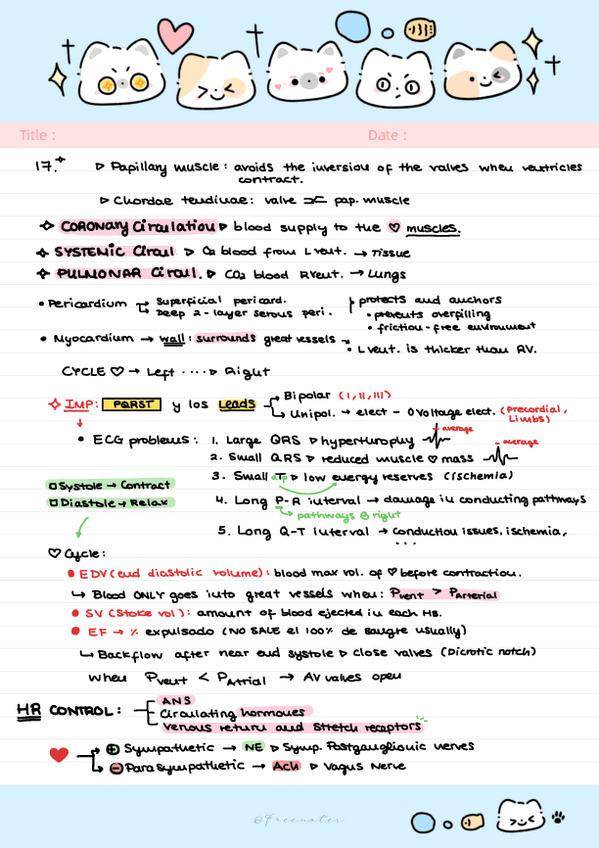 Title :
Date :
17.* ▷ Papillary muscle: avoids the inversion of the valves when ventricles
contract.
▷ Chordae tendinae: valve ⫘ pap. muscle
✧ CORONARY Circulation ▷ blood supply to the ♡ muscles.
✧ SYSTEMIC Circul ▷ O2 blood from L vent. → Tissue
✧ PULMONAR Circul. ▷ CO2 blood R Vent. → Lungs
• Pericardium → Superficial pericard.
→ Deep 2-layer serous peri.
protects and anchors
• prevents overfilling
• friction-free environment
• Myocardium → wall: surrounds great vessels
• L vent. is thicker than RV.
CYCLE ♡ → Left ····▷ Right
✧ IMP: PQRST y los Leads → Bipolar (I, II, III)
→ Unipol. → elect - 0 voltage elect. (Precordial,
Limbs)
• ECG problems: 1. Large QRS ▷ hyperthrophy average
2. Small QRS ▷ reduced muscle ♡ mass average
3. Small T ▷ low energy reserves (ischemia)
□ Systole → Contract
□ Diastole → Relax
4. Long P-R interval → damage in conducting pathways
pathways @ right
5. Long Q-T interval → conduction issues, ischemia,
...
♡ Cycle:
• EDV (end diastolic volume): blood max vol. of ♡ before contraction.
↳ Blood ONLY goes into great vessels when: Pvent > Parterial
• SV (Stoke vol): amount of blood ejected in each HB.
• EF → % expulsado (NO SALE el 100% de sangre usually)
↳ Backflow after near end systole ▷ close valves (Dicrotic notch)
when Pvent < PAtrial → AV valves open
HR CONTROL: ANS
Circulating hormones
Venous return and stretch receptors
♥ → ⊕ Sympathetic → NE ▷ Symp. Postganglionic nerves
→ ⊖ Parasympathetic → Ach ▷ Vagus Nerve
@Freenoter